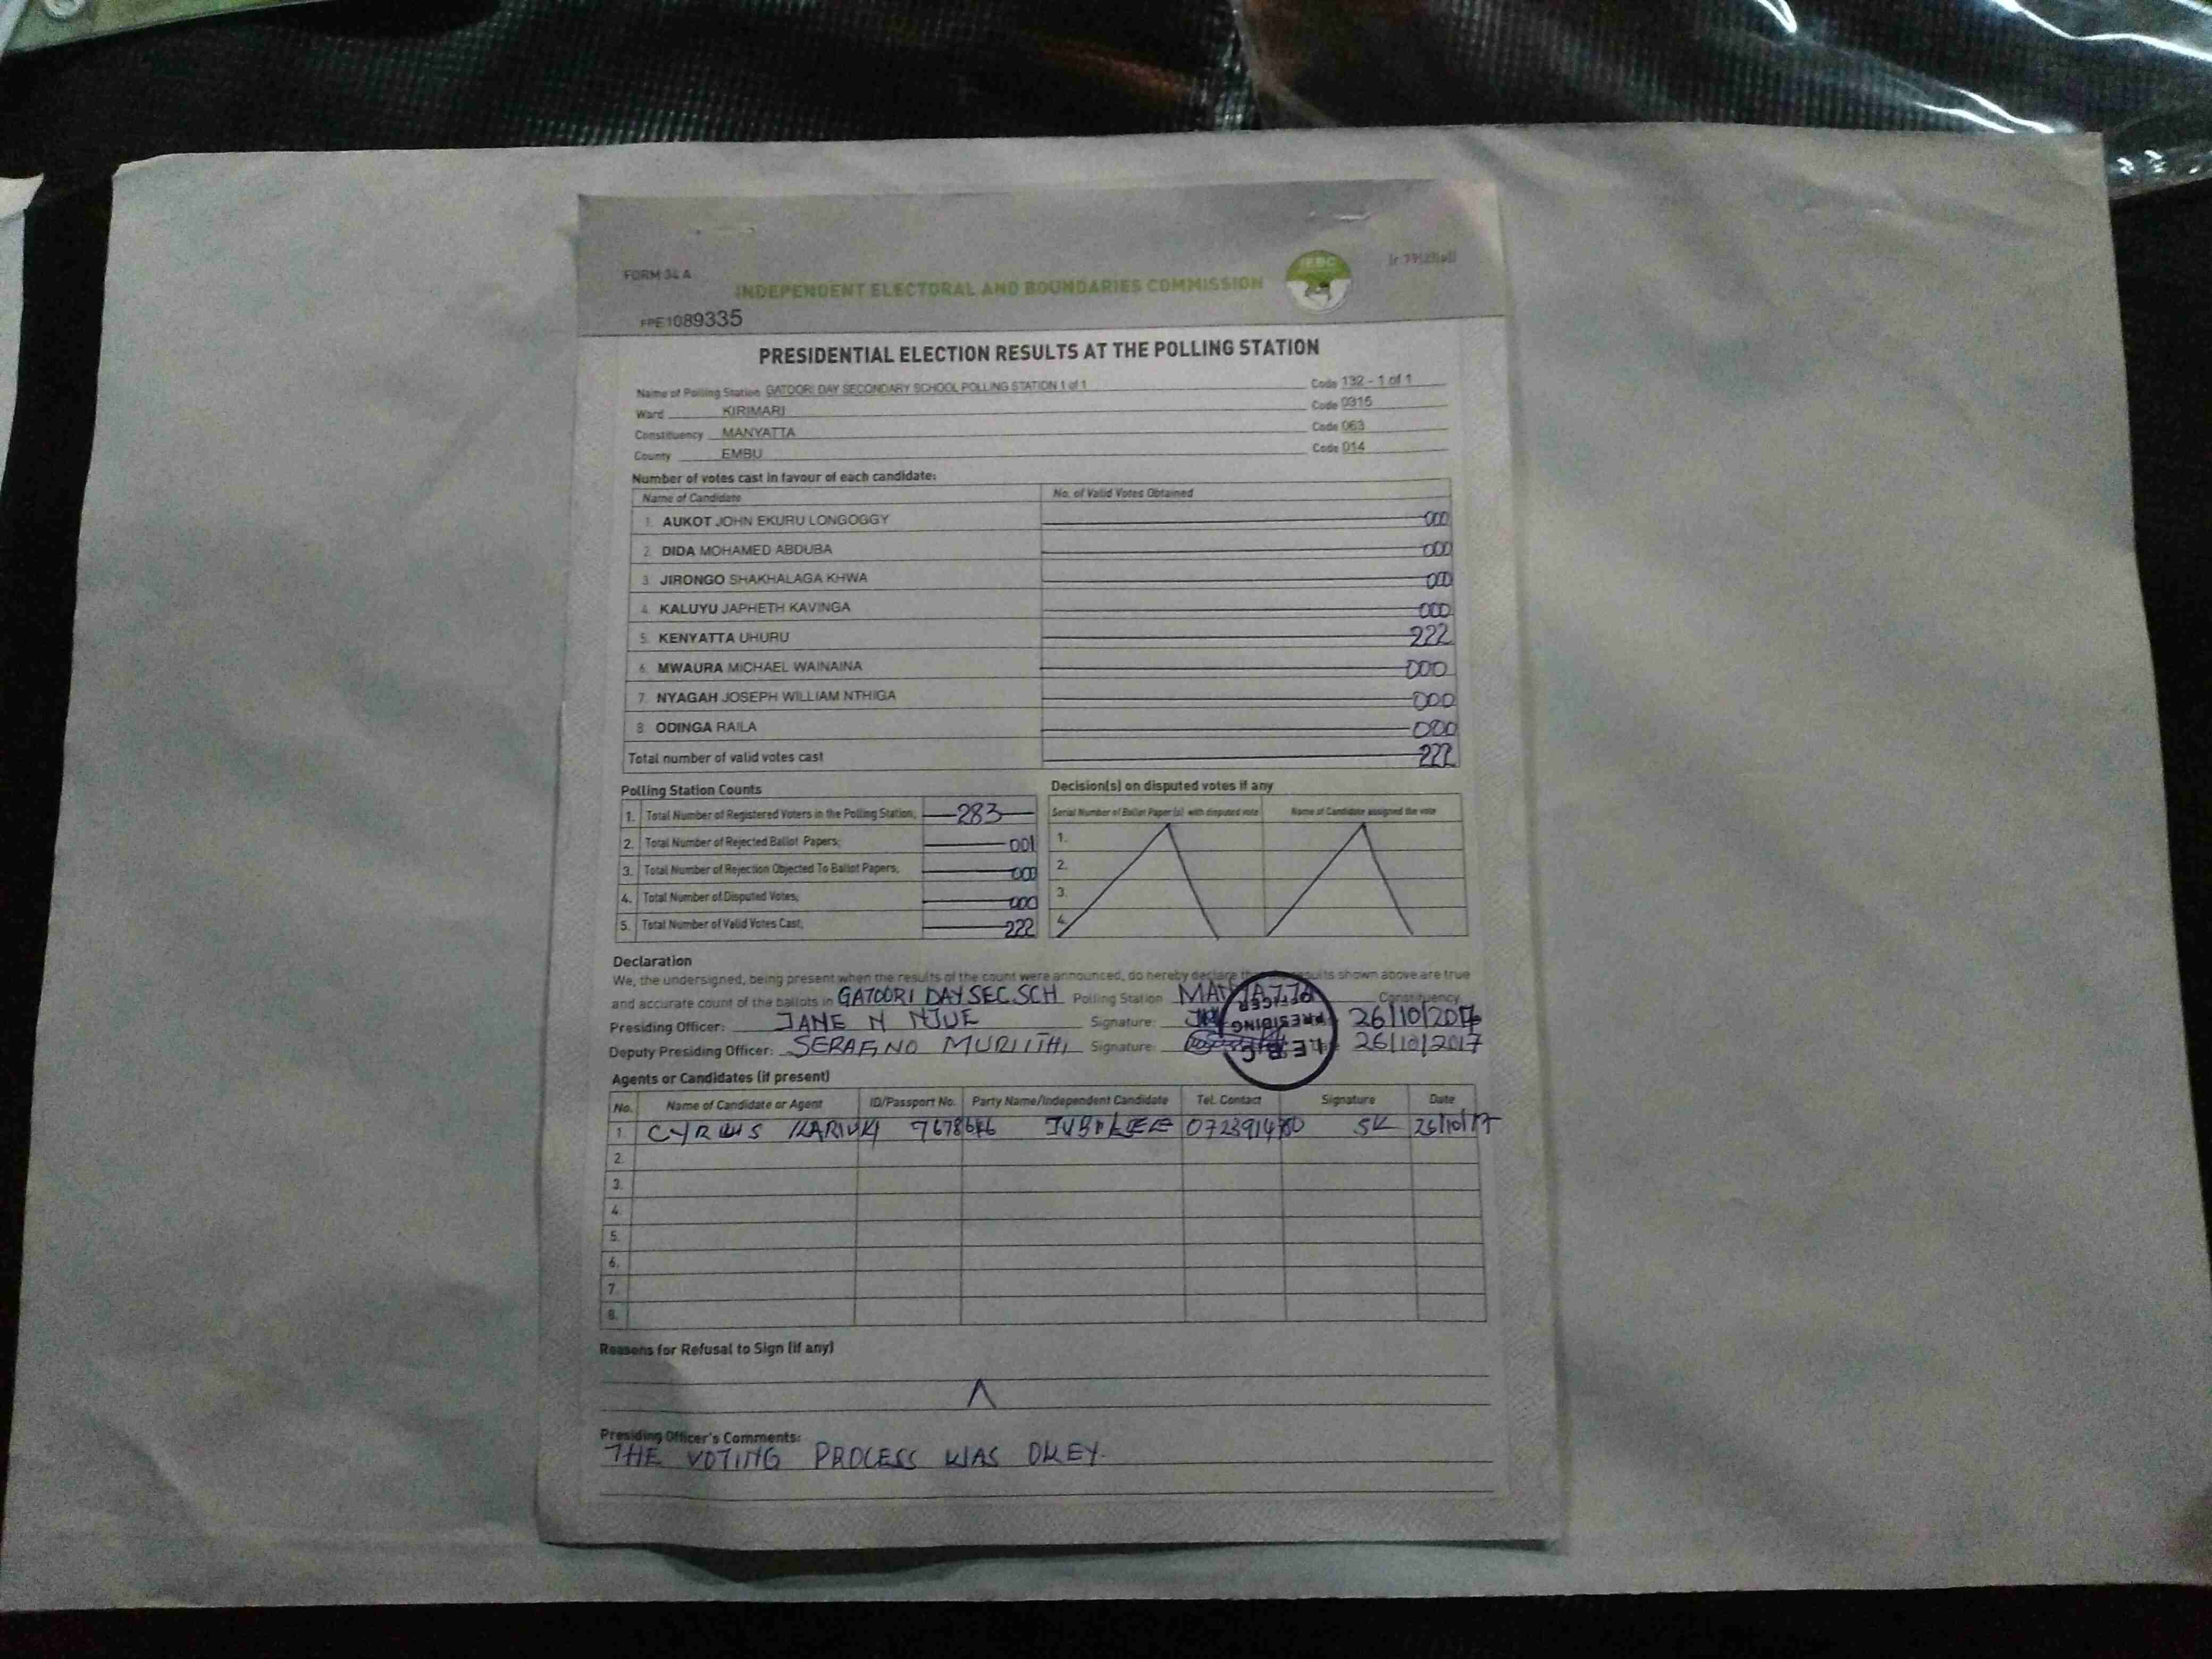 FORM 34 A
IEBC
INDEPENDENT ELECTORAL AND BOUNDARIES COMMISSION
FPE1089335
PRESIDENTIAL ELECTION RESULTS AT THE POLLING STATION
Name of Polling Station GATOORI DAY SECONDARY SCHOOL POLLING STATION 1 of 1 Code 132 - 1 of 1
Ward KIRIMARI Code 0315
Constituency MANYATTA Code 063
County EMBU Code 014
Number of votes cast in favour of each candidate:
Name of Candidate No. of Valid Votes Obtained
1. AUKOT JOHN EKURU LONGOGGY 000
2. DIDA MOHAMED ABDUBA 000
3. JIRONGO SHAKHALAGA KHWA 000
4. KALUYU JAPHETH KAVINGA 000
5. KENYATTA UHURU 222
6. MWAURA MICHAEL WAINAINA 000
7. NYAGAH JOSEPH WILLIAM NTHIGA 000
8. ODINGA RAILA 000
Total number of valid votes cast 222
Polling Station Counts
1. Total Number of Registered Voters in the Polling Station; 283
2. Total Number of Rejected Ballot Papers; 001
3. Total Number of Rejection Objected To Ballot Papers; 000
4. Total Number of Disputed Votes; 000
5. Total Number of Valid Votes Cast; 222
Decision(s) on disputed votes if any
Serial Number of Ballot Paper(s) with disputed vote Name of Candidate assigned the vote
1.
2.
3.
4.
Declaration
We, the undersigned, being present when the results of the count were announced, do hereby declare that the results shown above are true
and accurate count of the ballots in GATOORI DAY SEC SCH Polling Station MANYATTA Constituency
Presiding Officer: JANE N NJUE Signature: 26/10/2017
Deputy Presiding Officer: SERAFINO MURIITHI Signature: Date 26/10/2017
I.E.B.C PRESIDING OFFICER
Agents or Candidates (if present)
No. Name of Candidate or Agent ID/Passport No. Party Name/Independent Candidate Tel. Contact Signature Date
1. CYRUS KARIUKI JUBILEE SK 26/10/17
2.
3.
4.
5.
6.
7.
8.
Reasons for Refusal to Sign (if any)
Presiding Officer's Comments:
THE VOTING PROCESS WAS OKEY.